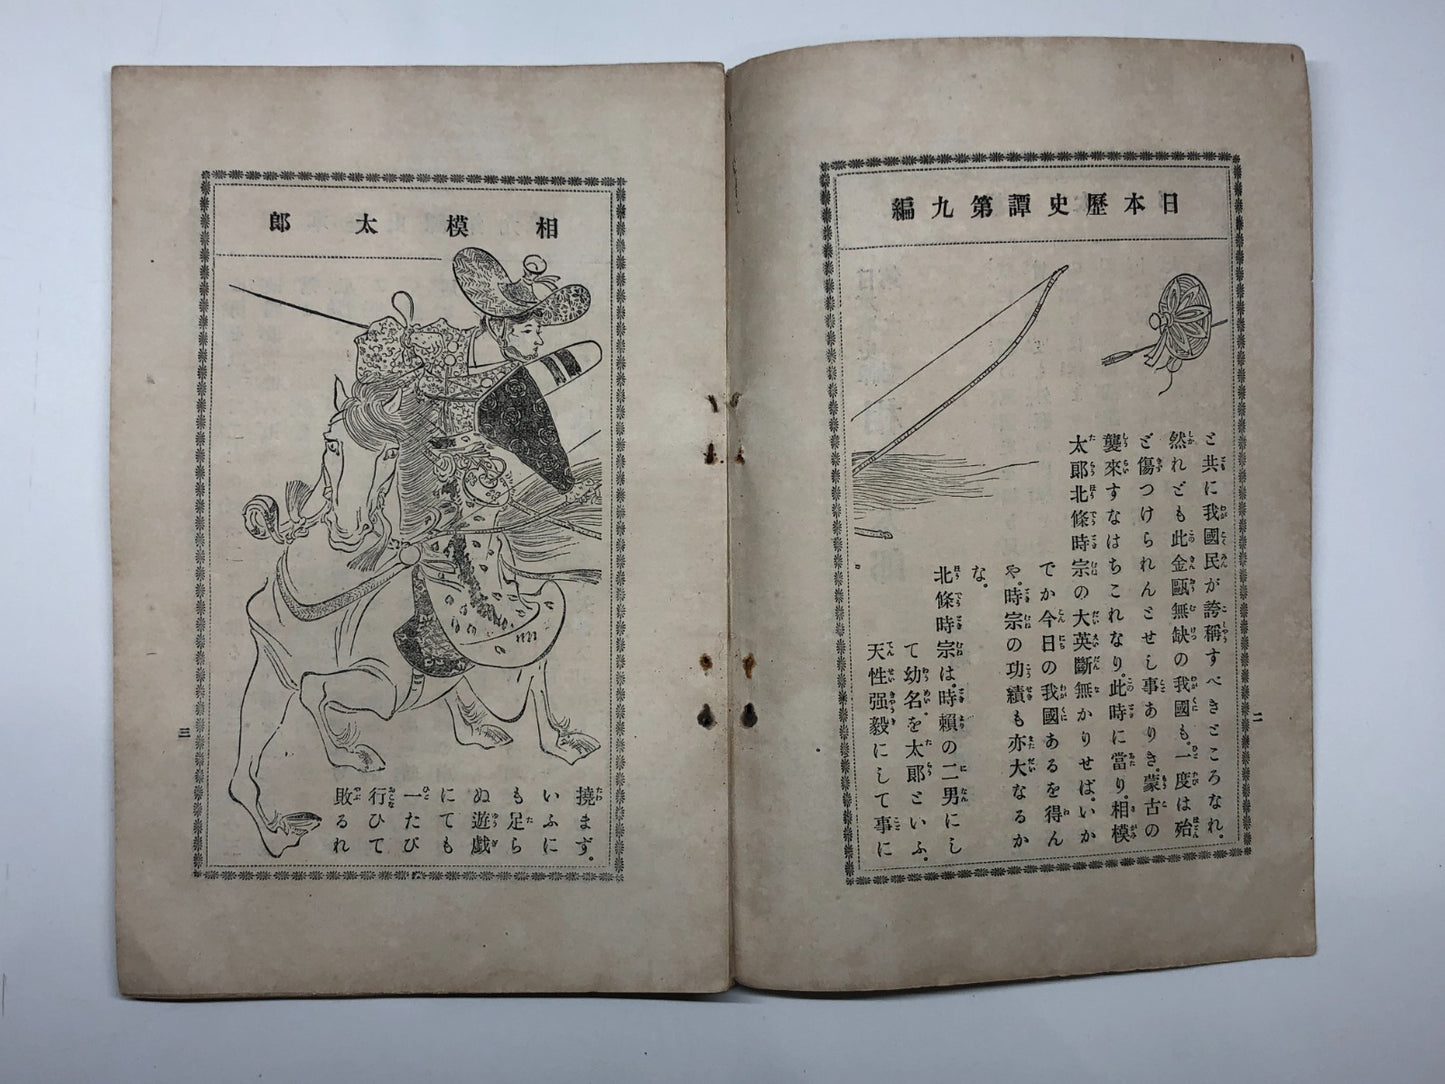 日本歷史譚第九編
と共に我國民が誇稱すべきところなれ。
然れども此金甌無缺の我國も、一度は殆
ど傷つけられんとせし事ありき。蒙古の
襲來すなはちこれなり。此時に當り、相模
太郎北條時宗の大英斷無かりせば、いか
でか今日の我國あるを得ん
や。時宗の功績も亦大なるか
な。
北條時宗は、時賴の二男にし
て幼名を太郎といふ。
天性强毅にして事に
二
相模太郎
撓まず。
いふに
も足ら
ぬ遊戲
にても
一たび
行ひて
敗るれ
三